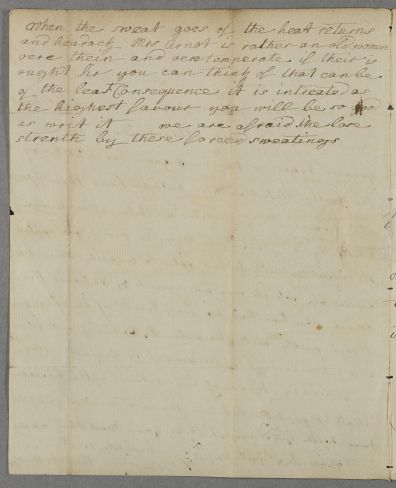 When the sweat goes of the heat returns
and hearach Mrs Arnot is rather an old women
vere thein and vere temperate if their is
ought Sir you can think of that can be
of the least Consequence it is intreated as
the highest favour you will be so good
as writ it we are afraid she lose
strenth by these forced sweatings